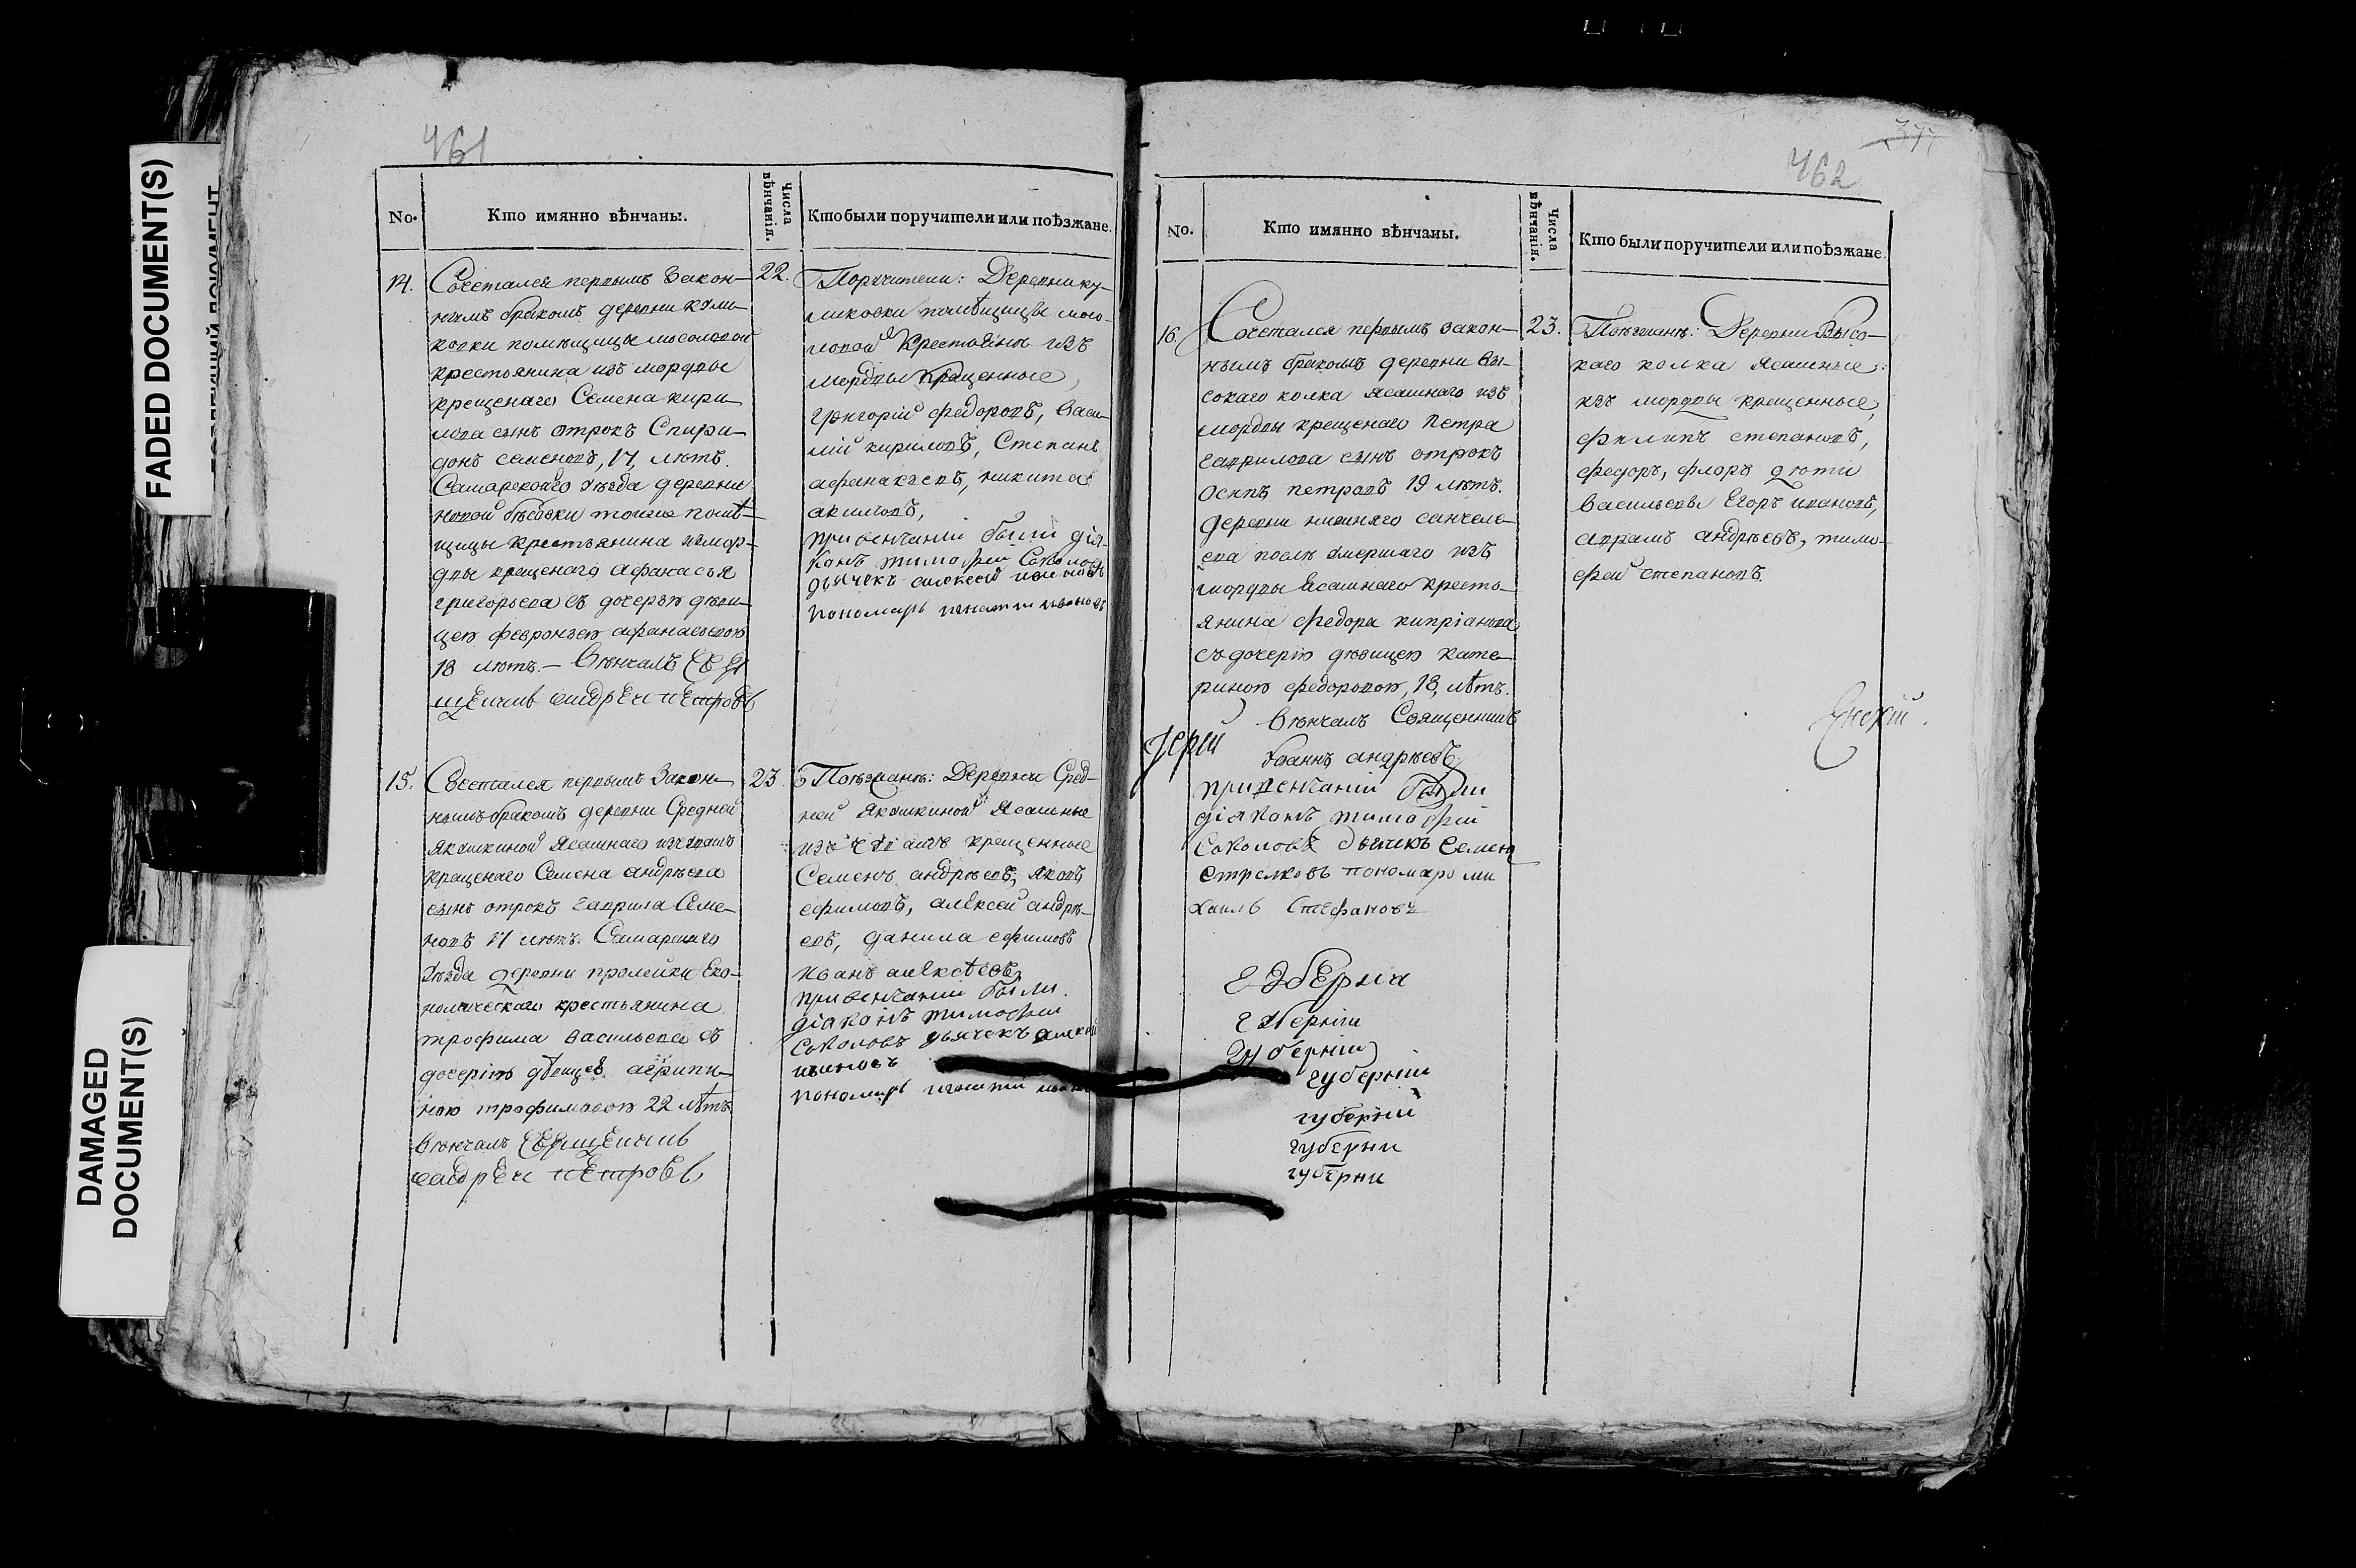 FADED DOCUMENT(S)
DAMAGED
DOCUMENT(S)
461
No.
Кто имянно вѣнчаны.
Числа
вѣнчанія.
Кто были поручители или поѣзжане.
14.
Сочетался первымъ закон-
нымъ бракомъ деревни кули-
ковки помѣщицы мосоловой
крестьянина изъ мордвы
крещенаго Семена кири-
лова сынъ отрокъ Спири-
донъ семеновъ, 17, лѣтъ.
Самарскаго уѣзда деревни
новой бѣсовки тойже помѣ-
щицы крестьянина измор-
двы крещенаго афанасья
григорьева съ дочерью дѣви-
цею февроньею афанасьевою
18 лѣтъ.— Вѣнчалъ Свя
щенникъ андрей петровъ
22.
Поручители: Деревни ку-
ликовки помѣщицы мосо-
ловой крестьяина изъ
мордвы крещенные,
григорій федоровъ, васи-
лій кириловъ, Степанъ
афанасьевъ, никита
акимовъ,
привенчаніи были дія-
конъ тимофей Соколовъ
дьячекъ алексей ивановъ
пономарь игнатии ивановъ
15.
Сочетался первымъ закон-
нымъ бракомъ деревни Средней
якушкиной ясашнаго изчувашъ
крещенаго Семена андрѣева
сынъ отрокъ гаврила Семе-
новъ 17 лѣтъ. Самарскаго
уѣзда деревни пролейки Еко-
номическаго крестьянина
трофима васильева съ
дочерію дѣвицею агрипи-
ною трофимовою 22 лѣтъ
Вѣнчалъ Священникъ
андрей петровъ
23
Поѣзжанѣ: Деревни Сред-
ней якушкиной Ясашные
изъ чувашъ крещенные
Семенъ андрѣевъ, яковъ
ефимовъ, алексей андрѣ-
евъ, данила ефимовъ
иванъ алексѣевъ,
привенчаніи были.
діяконъ тимофеи
Соколовъ дьячекъ алексеи
ивановъ
пономарь игнатии ивановъ
377
462
No.
Кто имянно вѣнчаны.
Числа
вѣнчанія.
Кто были поручители или поѣзжане
16.
Сочетался первымъ закон-
нымъ бракомъ деревни вы-
сокаго колка ясашнаго изъ
мордвы крещенаго петра
гаврилова сынъ отрокъ
осипъ петровъ 19 лѣтъ.
деревни нижняго санчеле-
ева послѣ умершаго изъ
мордвы ясашнаго кресто-
янина федора кипріанова
съ дочерію дѣвицею кате-
риною федоровою, 18, лѣтъ.
Вѣнчалъ Священникъ
Іереи
іоаннъ андрѣевъ
привенчаніи были
діяконъ тимофій
Соколовъ дьячекъ семенъ
стрелковъ пономарь ми
хаилъ Стефановъ
23.
Поѣзжанѣ: Деревни Высо-
каго колка ясашные:
изъ мордвы крещенные,
филипъ степановъ,
федоръ, флоръ дѣти
васильевы Егоръ ивановъ,
аврамъ андрѣевъ, тимо-
фей степановъ.
губерниа
губерніи
губерніи
губерніи
губерніи
губерни
губерни